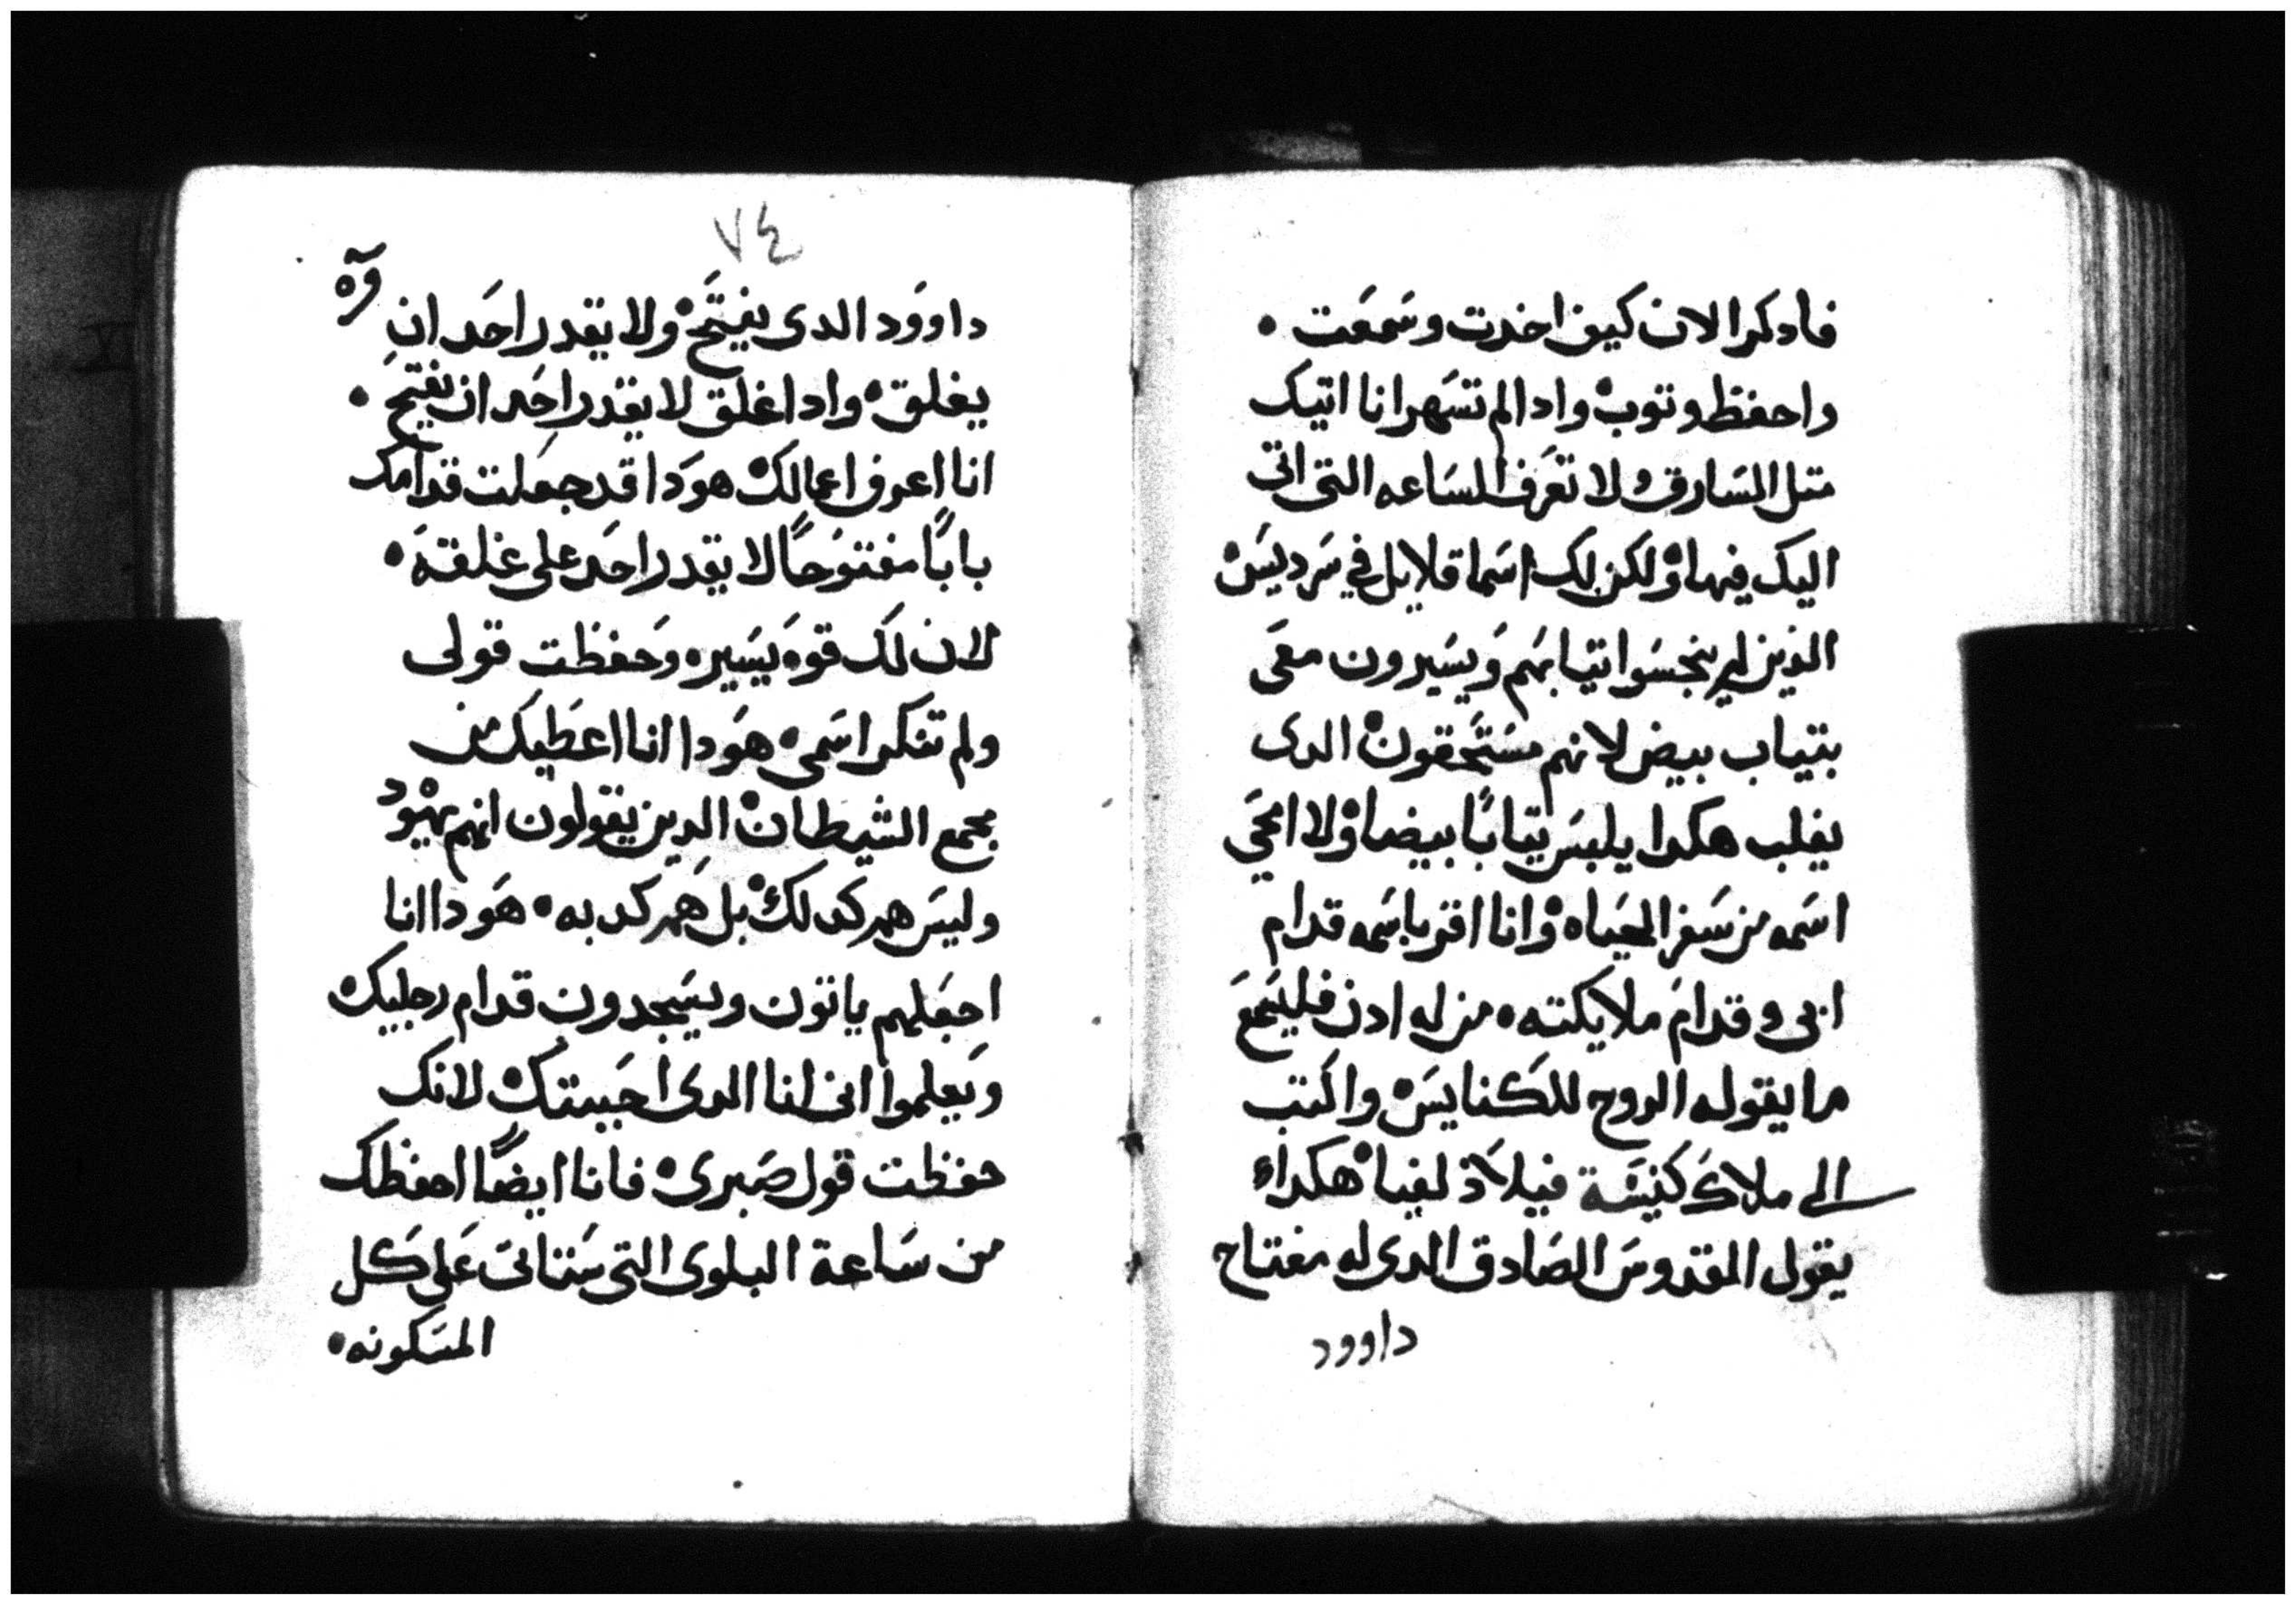 فادكر الان كيف اخدت وسَمعَت •
واحفظ وتوب• وادا لم تسَهر انا اتيك
متل السَارق ولا تعَرف السَاعه التى اتى
اليك فيها• ولكن لك اسَما قلايل في سَرديسَ•
الذين لم ينجسَوا تيابهم وَيسَيرون معَى
بتياب بيض لانهم مسَتَحقون• الدى
يغلب هكدا يلبسَ تيابًا بيضا• ولا امحَي
اسَمه من سَفر الحَياه• وانا اقر باسَمه قدام
ابى وقدامَ ملايكته• من له ادن فليسَمعَ
ما يقوله الروح للكنايسَ• واكتب
الى ملاك كنيسَة فيلادلفيا• هكدا•
يقول القدوسَ الصَادق الدى له مفتاح
داوود
٧٤
داووَد الدى يفتَح• ولا يقدر احَد ان
يغلق• وادا اغلق لا يقدر احَد ان يفتح •
انا اعرف اعمالك• هوَدا قد جعَلت قدامك
بابًا مفتوحًا لا يقدر احَد على غلقهَ•
لان لك قوهَ يسَيره وحَفظت قولى
ولم تنكر اسَمى• هوَدا انا اعطيك من
مجمع الشيطان• الدين يقولون انهم يهَود
وليسَ هم كدلك• بل هَم كدبه• هَودا انا
اجعَلهم ياتون ويسَجدون قدام رجليك•
وَيعلموا انى انا الدى احَببتك• لانك
حفظت قول صَبرى• فانا ايضًا احفظك
من سَاعة البلوى التى سَتاتى عَلى كل
المسَكونه•